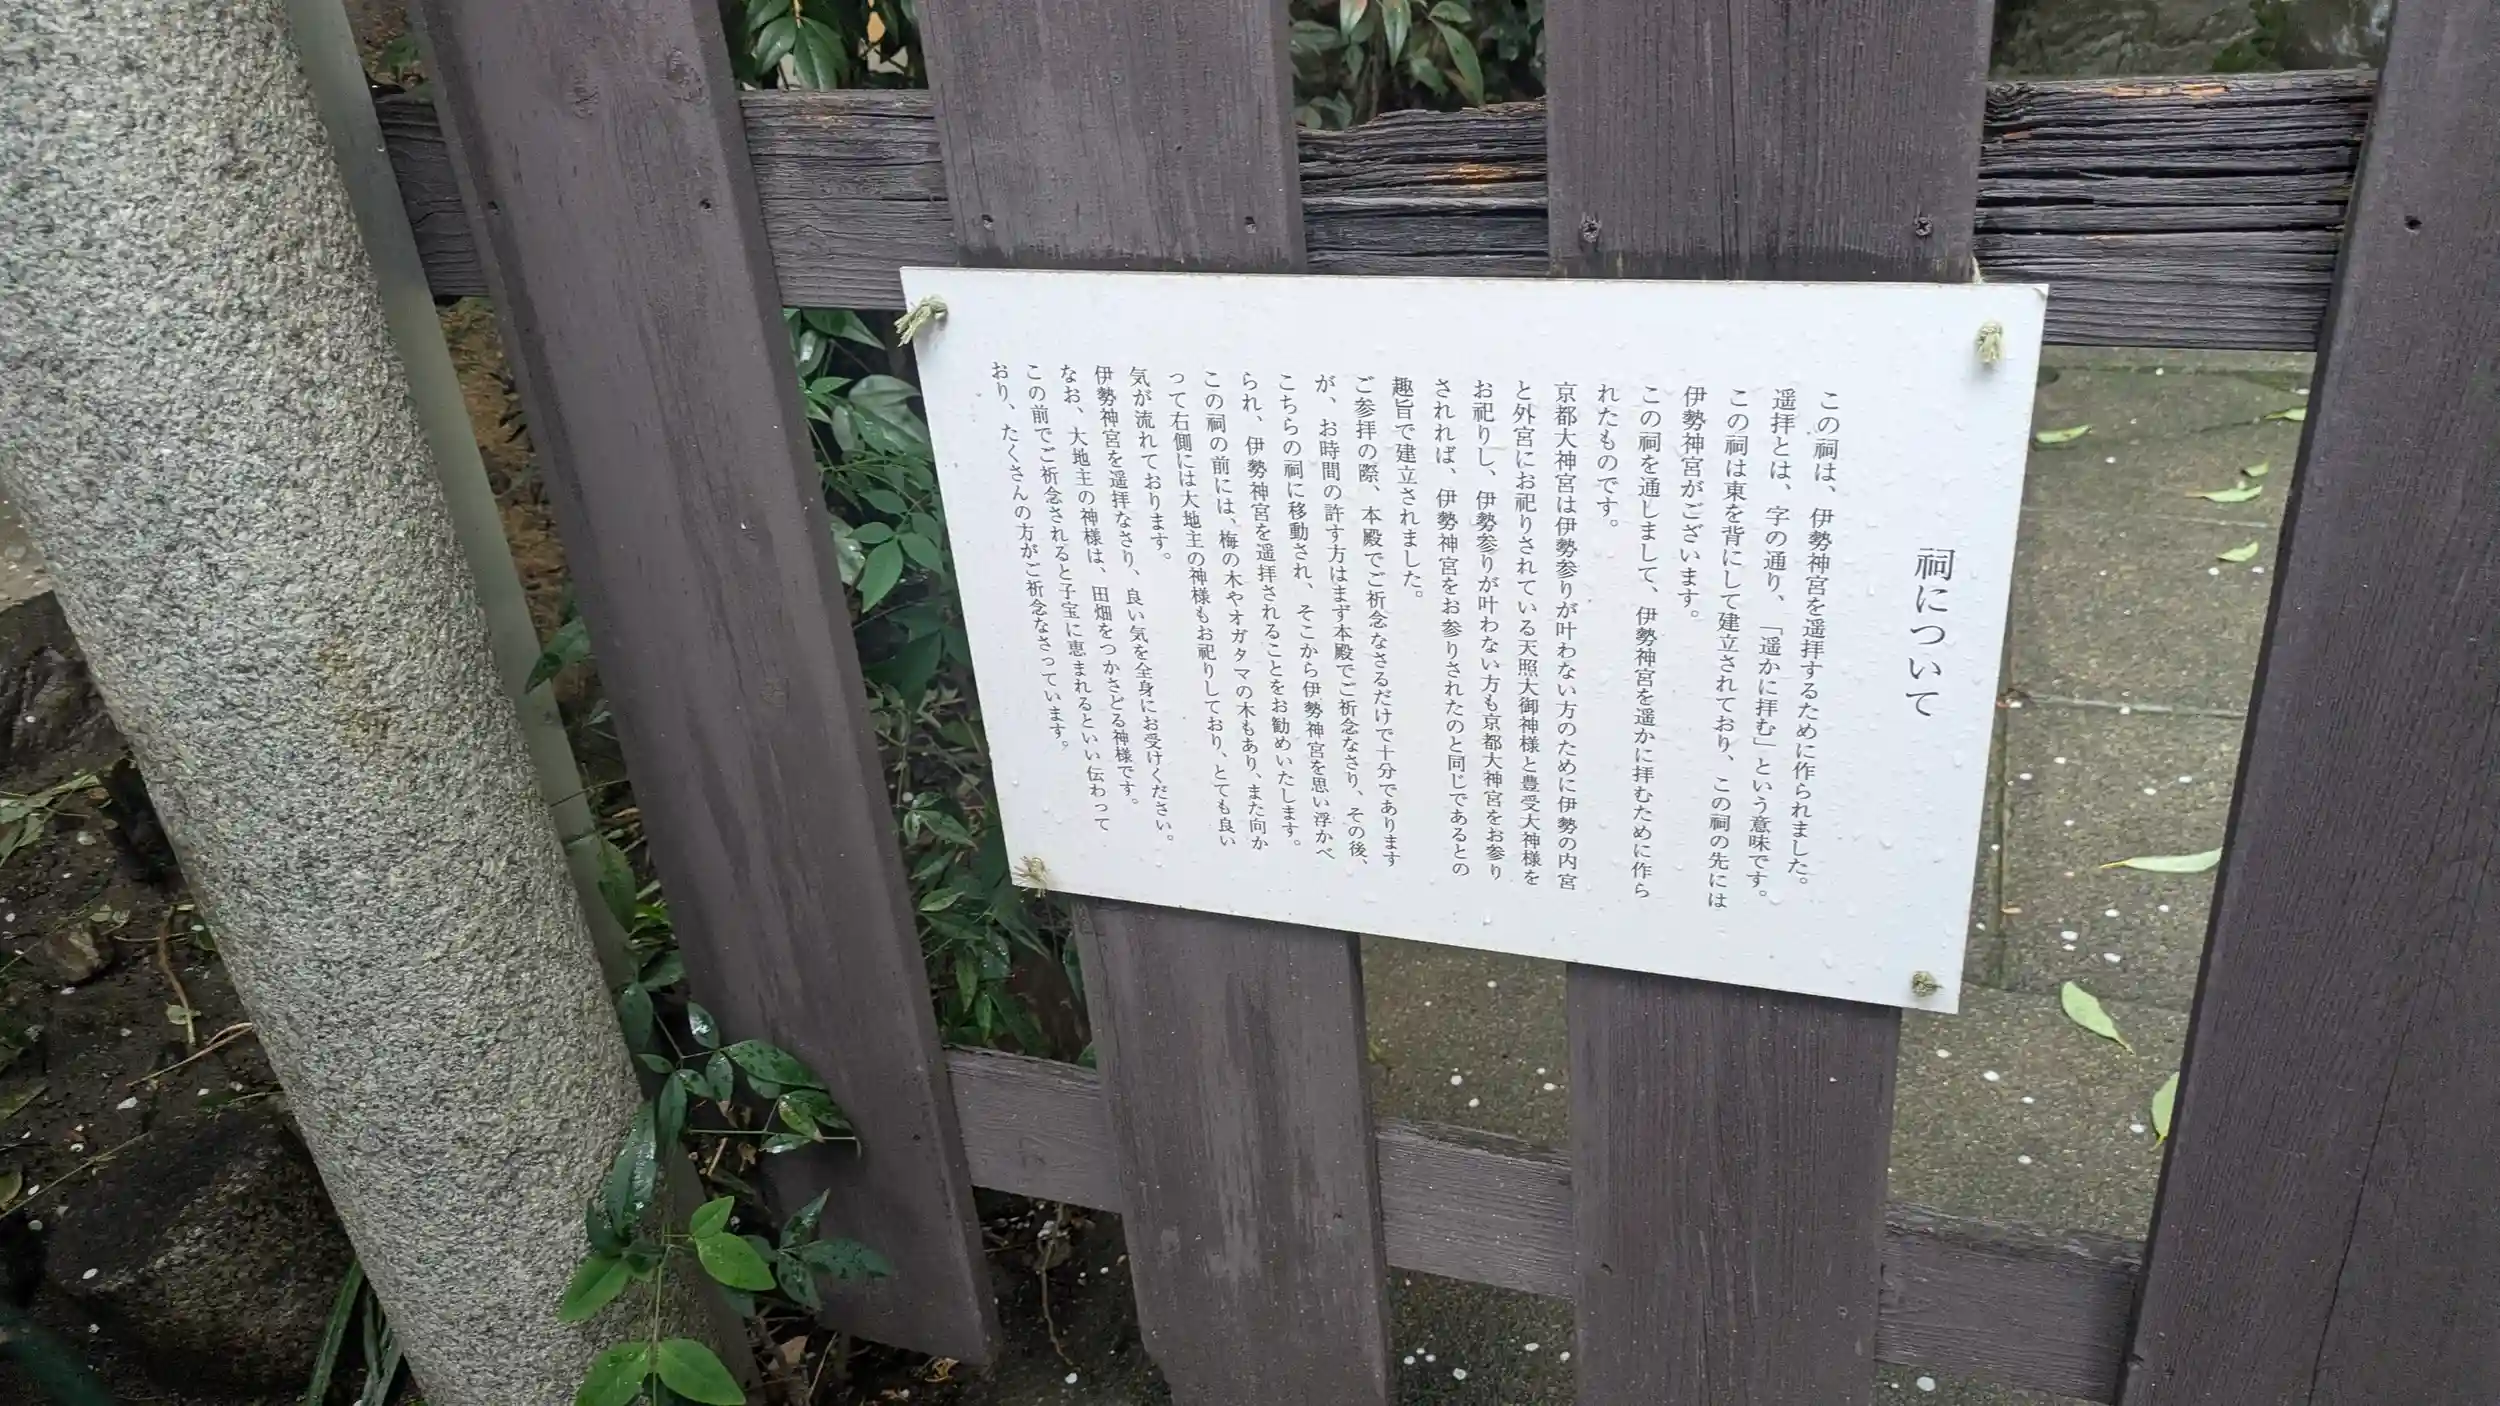 祠について
この祠は、伊勢神宮を遥拝するために作られました。
遥拝とは、字の通り、「遥かに拝む」という意味です。
この祠は東を背にして建立されており、この祠の先には
伊勢神宮がございます。
この祠を通しまして、伊勢神宮を遥かに拝むために作ら
れたものです。
京都大神宮は伊勢参りが叶わない方のために伊勢の内宮
と外宮にお祀りされている天照大御神様と豊受大神様を
お祀りし、伊勢参りが叶わない方も京都大神宮をお参り
されれば、伊勢神宮をお参りされたのと同じであるとの
趣旨で建立されました。
ご参拝の際、本殿でご祈念なさるだけで十分であります
が、お時間の許す方はまず本殿でご祈念なさり、その後、
こちらの祠に移動され、そこから伊勢神宮を思い浮かべ
られ、伊勢神宮を遥拝されることをお勧めいたします。
この祠の前には、梅の木やオガタマの木もあり、また向か
って右側には大地主の神様もお祀りしており、とても良い
気が流れております。
伊勢神宮を遥拝なさり、良い気を全身にお受けください。
なお、大地主の神様は、田畑をつかさどる神様です。
この前でご祈念されると子宝に恵まれるといい伝わって
おり、たくさんの方がご祈念なさっています。